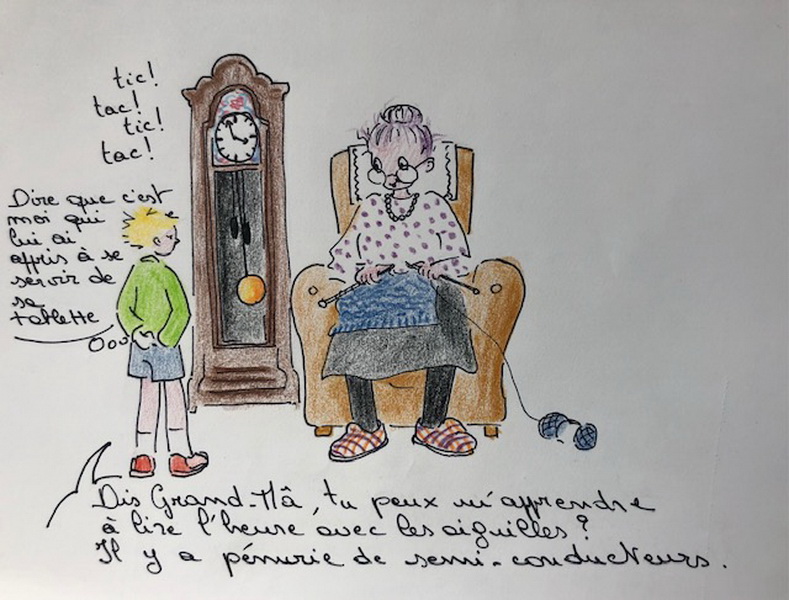 tic!
tac!
tic!
tac!
Dire que c'est
moi qui
lui ai
appris à se
servir de
sa
tablette
Dis Grand-Mâ, tu peux m'apprendre
à lire l'heure avec les aiguilles?
Il y a pénurie de semi-conducteurs.